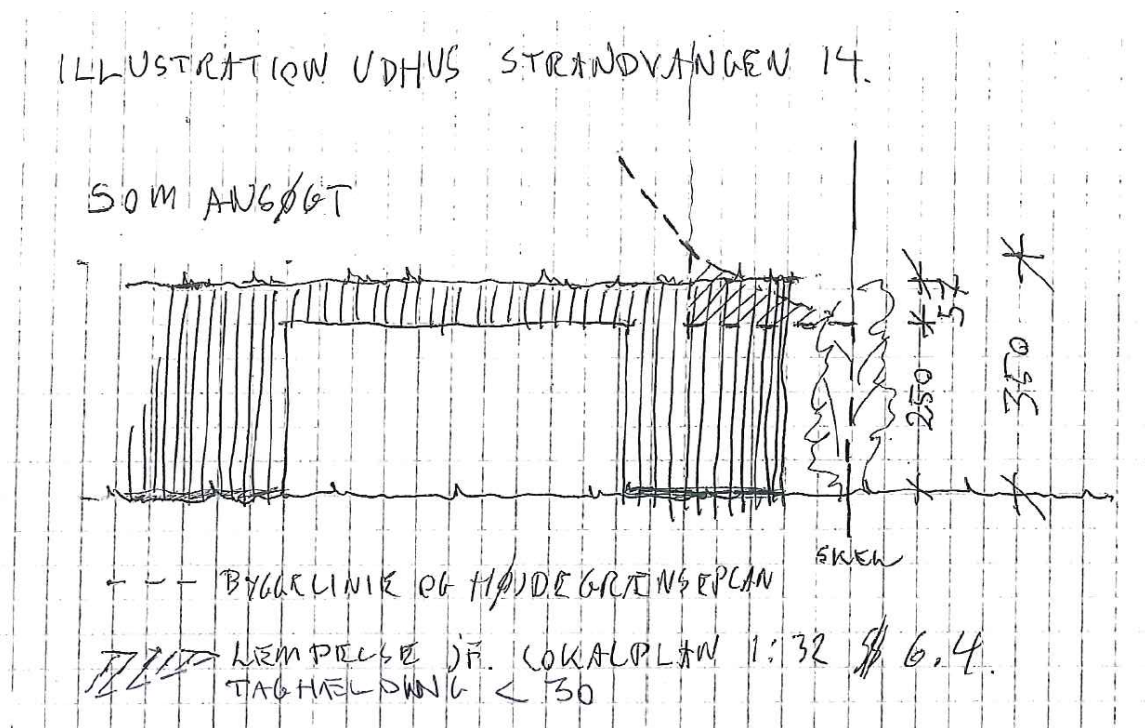 ILLUSTRATION UDHUS STRANDVANGEN 14.
SOM ANSØGT
57
250
350
SKEL
--- BYGGELINIE OG HØJDEGRÆNSEPLAN
LEMPELSE JF. LOKALPLAN 1:32 § 6.4.
TAGHÆLDNING < 30